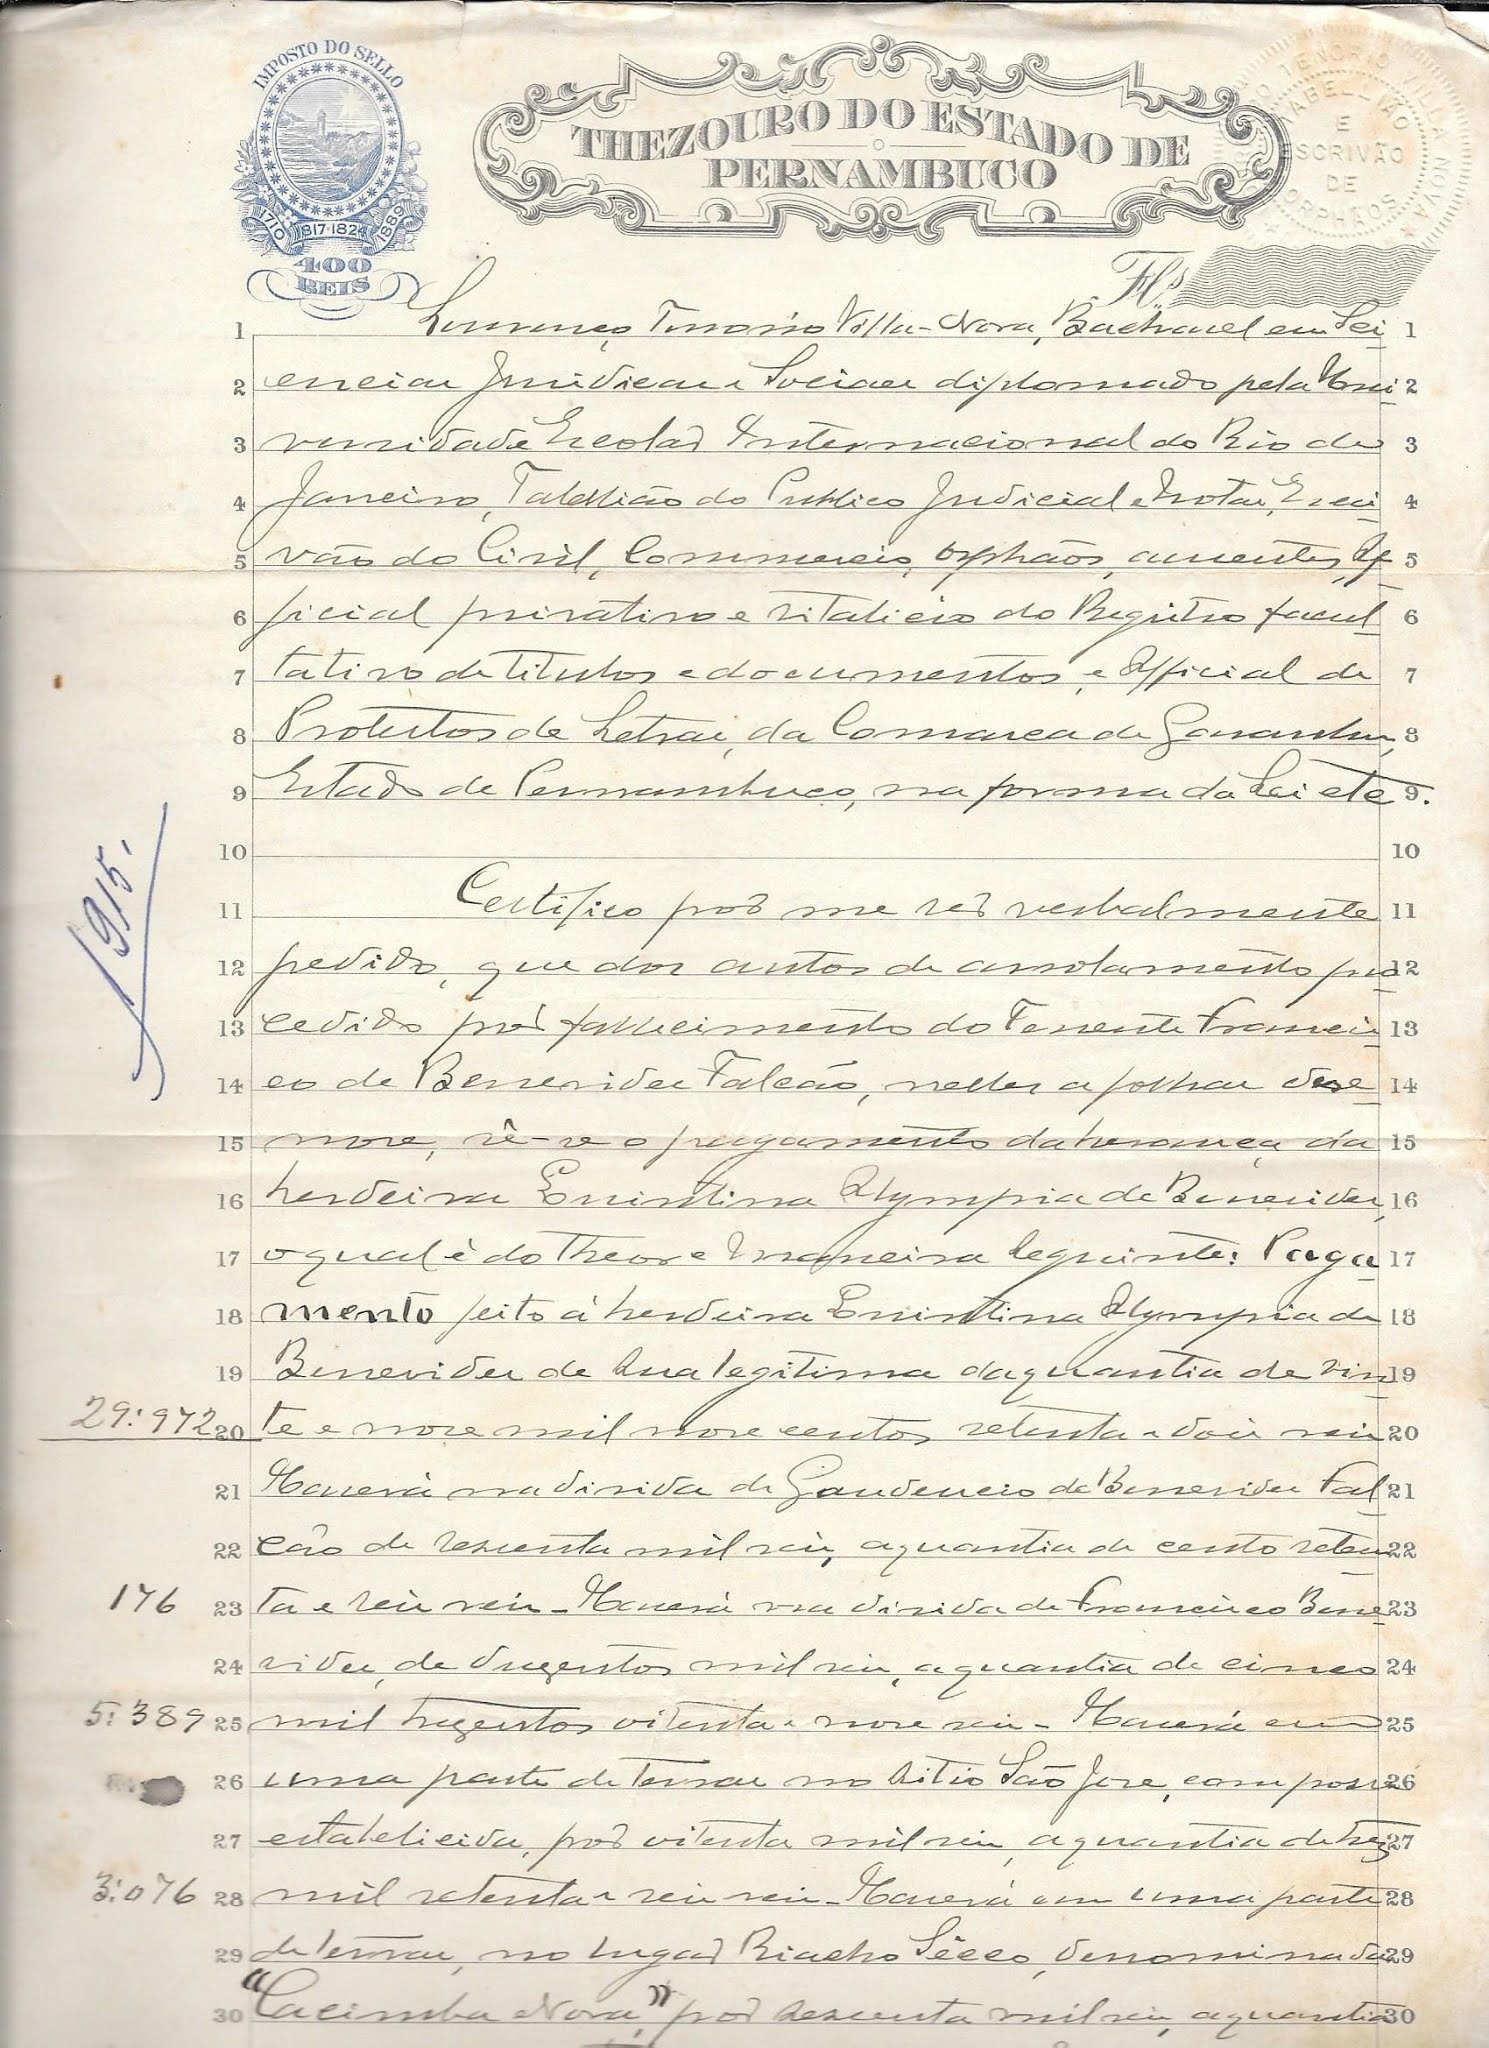 IMPOSTO DO SELLO
1710 1817·1824 1889
400
REIS
THEZOURO DO ESTADO DE
PERNAMBUCO
TENORIO VILLA NOVA
TABELLIÃO
E
ESCRIVÃO
DE
ORPHÃOS
Fls
1 Lourenço Tenorio Villa-Nova, Bacharel em Sci 1
2 encias Juridicas e Sociaes diplomado pela Uni 2
3 versidade Escolar Internacional do Rio de 3
4 Janeiro, Tabellião do Publico Judicial e Notas, Escri 4
5 vão do Civil, Commercio, orphãos, ausentes, Of 5
6 ficial privativo e vitalicio do Registro facul 6
7 tativo de titulos e documentos, e Official de 7
8 Protestos de Letras, da Comarca de Garanhuns, 8
9 Estado de Pernambuco, na forma da Lei etc. 9
10 10
11 Certifico por me ser verbalmente 11
12 pedido, que dos autos de arrolamento pro 12
13 cedido por fallecimento do Tenente Francis 13
14 co de Benevides Falcão, nelles a folhas deze 14
15 nove, vê-se o pagamento da herança da 15
16 herdeira Quintina Olympia de Benevides, 16
17 o qual é do theor e maneira seguinte: Paga 17
18 mento feito á herdeira Quintina Olympia de 18
19 Benevides de sua legitima da quantia de vin 19
29:972 20 te e nove mil nove centos setenta e dois reis 20
21 Haverá na divida de Gaudencio de Benevides Fal 21
22 cão de sescenta mil reis, a quantia de cento seten 22
176 23 ta e seis reis - Haverá na divida de Francisco Bene 23
24 vides, de duzentos mil reis, a quantia de cinco 24
5:389 25 mil trezentos oitenta e nove reis - Haverá em 25
26 uma parte de terras no sitio São José, com posse 26
27 estabelicida, por oitenta mil reis, a quantia de trez 27
3:076 28 mil setenta e seis reis - Haverá em uma parte 28
29 de terras, no lugar Riacho Sêcco, denominada 29
30 "Cacimba Nova", por sescenta mil reis, a quantia 30
1915.